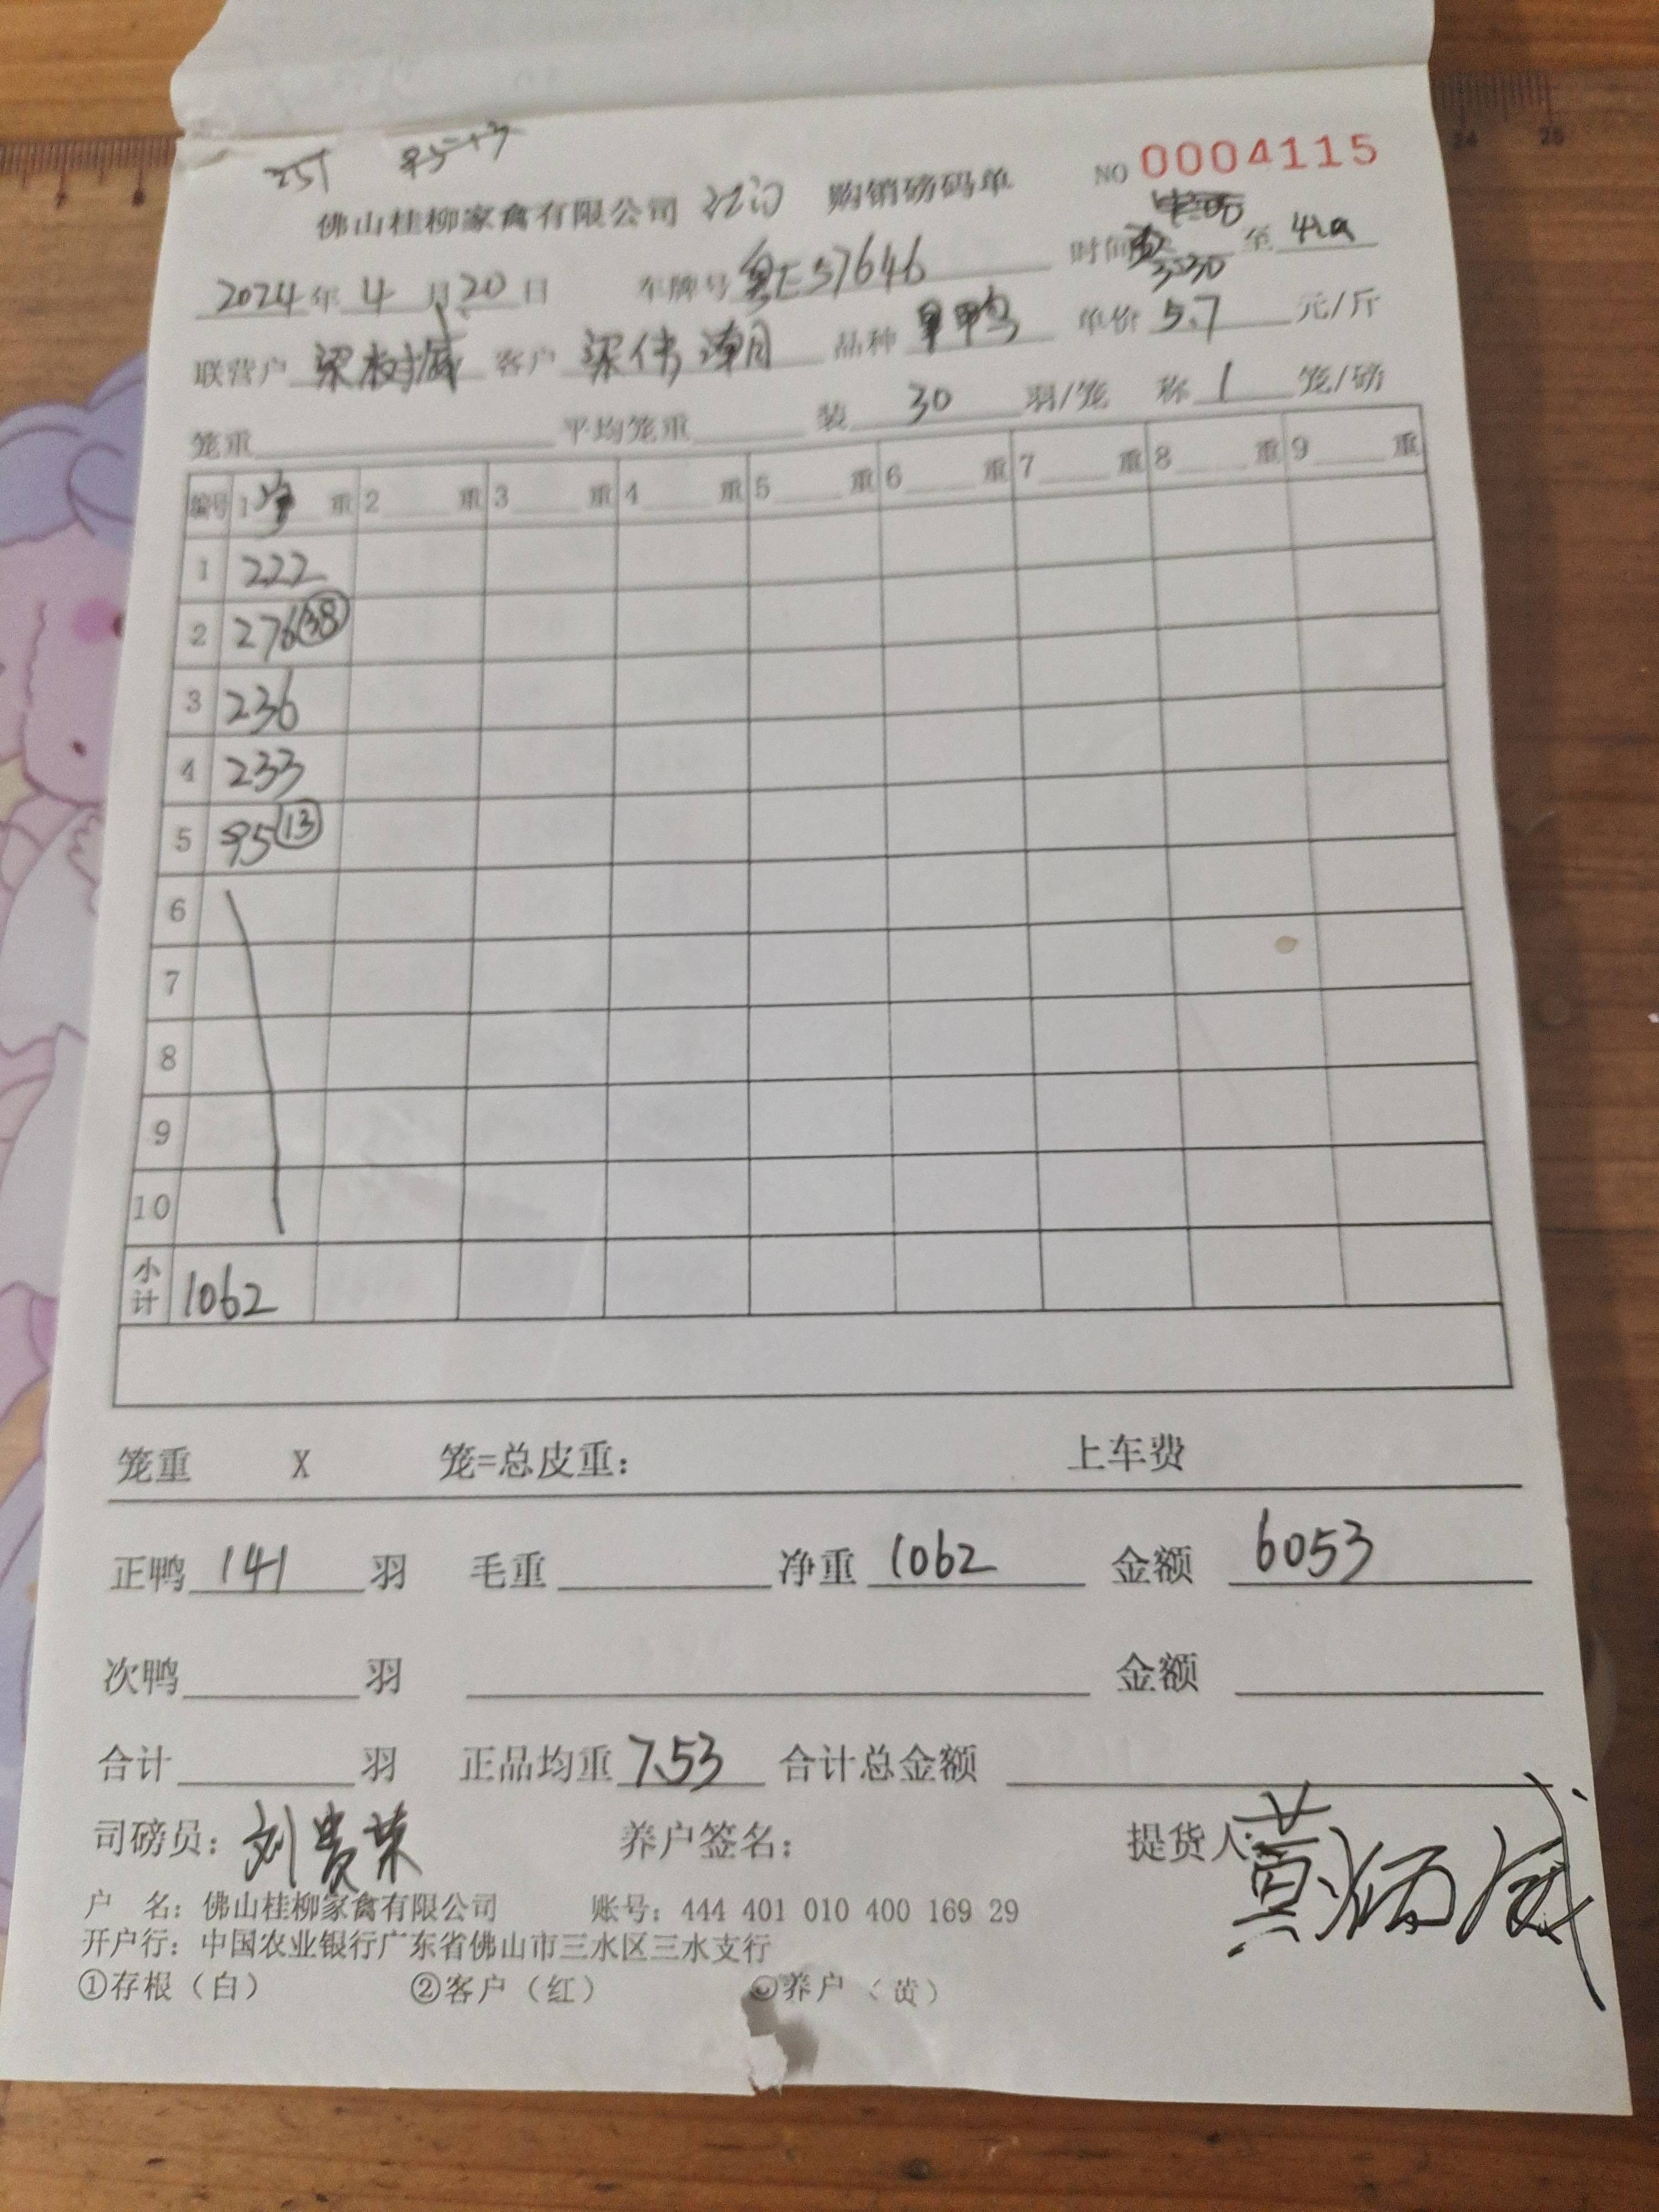 251 95-13
佛山桂柳家禽有限公司 江门 购销磅码单 NO 0004115
2024年4月20日 车牌号 粤E57646 时间 3:30 至 4:20
联营户 梁树 客户 梁伟潮 品种 单价 5.7 元/斤
笼重 平均笼重 装 30 羽/笼 称 1 笼/磅
编号 1 重 2 重 3 重 4 重 5 重 6 重 7 重 8 重 9 重
1 222
2 276 38
3 236
4 233
5 95 13
6
7
8
9
10
小计 1062
笼重 X 笼=总皮重: 上车费
正鸭 141 羽 毛重 净重 1062 金额 6053
次鸭 羽 金额
合计 羽 正品均重 7.53 合计总金额
司磅员: 刘贵荣 养户签名: 提货人: 黄炳威
户 名: 佛山桂柳家禽有限公司 账号: 444 401 010 400 169 29
开户行: 中国农业银行广东省佛山市三水区三水支行
①存根（白） ②客户（红） ③养户（黄）